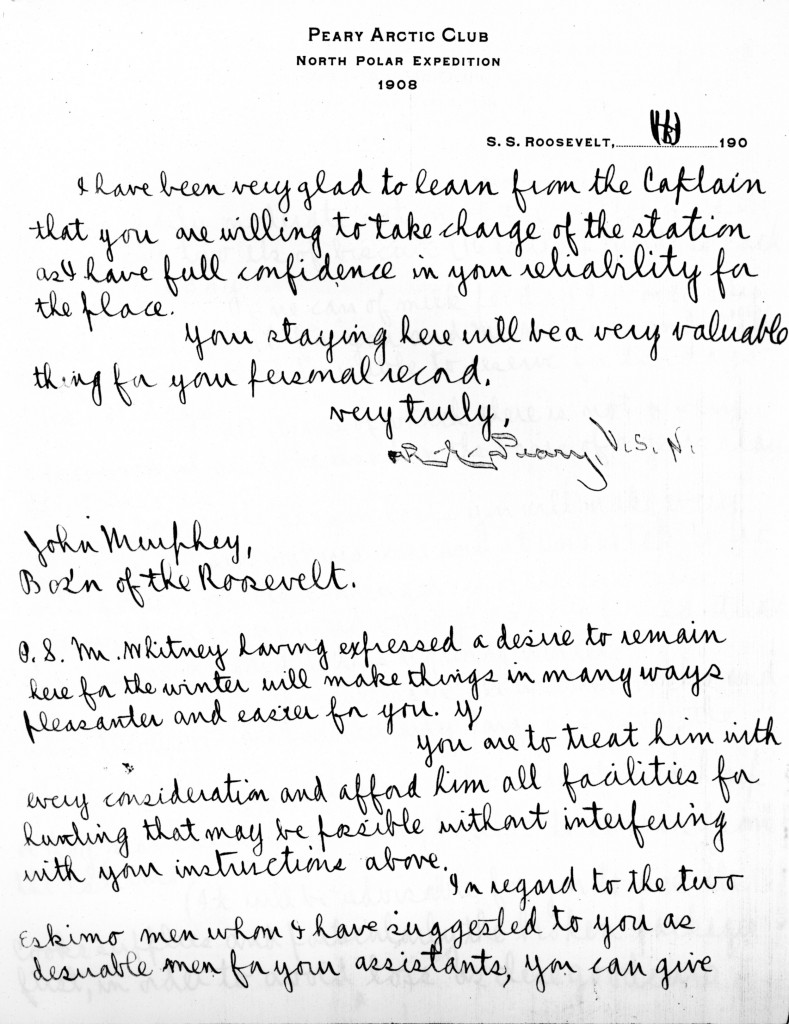 PEARY ARCTIC CLUB
NORTH POLAR EXPEDITION
1908
S. S. ROOSEVELT, 190
I have been very glad to learn from the Captain
that you are willing to take charge of the station
as I have full confidence in your reliability for
the place.
Your staying here will be a very valuable
thing for your personal record.
Very truly,
R. E. Peary, U.S.N.
John Murphey,
Bos'n of the Roosevelt.
P.S. Mr. Whitney having expressed a desire to remain
here for the winter will make things in many ways
pleasanter and easier for you. Y
You are to treat him with
every consideration and afford him all facilities for
hunting that may be possible without interfering
with your instructions above.
In regard to the two
Eskimo men whom I have suggested to you as
desirable men for your assistants, you can give